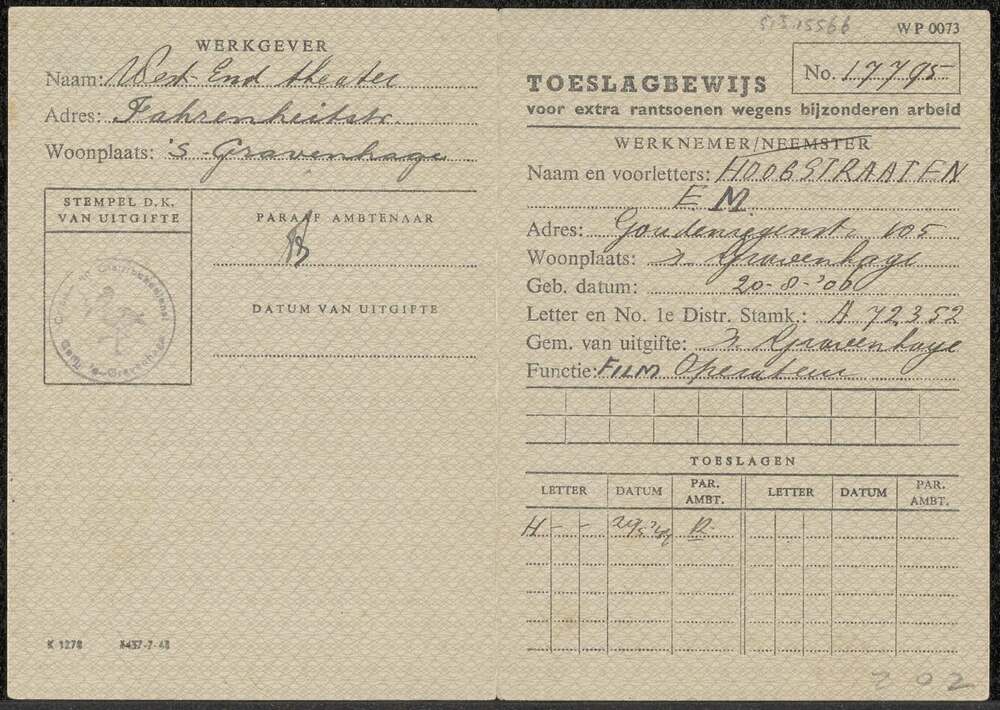 WERKGEVER
Naam: West-End theater
Adres: Fahrenheitstr.
Woonplaats: 's-Gravenhage
STEMPEL D.K.
VAN UITGIFTE
PARAAF AMBTENAAR
DATUM VAN UITGIFTE
K 1278
513.15566
WP 0073
No. 17795
TOESLAGBEWIJS
voor extra rantsoenen wegens bijzonderen arbeid
WERKNEMER/NEEMSTER
Naam en voorletters: HOOGSTRAATEN
E M.
Adres: Goudenregenstr. 105
Woonplaats: 's Gravenhage
Geb. datum: 20-8-'06
Letter en No. 1e Distr. Stamk.: A 72352
Gem. van uitgifte: 's Gravenhage
Functie: FILM Operateur
TOESLAGEN
LETTER DATUM PAR. AMBT. LETTER DATUM PAR. AMBT.
H - -
202